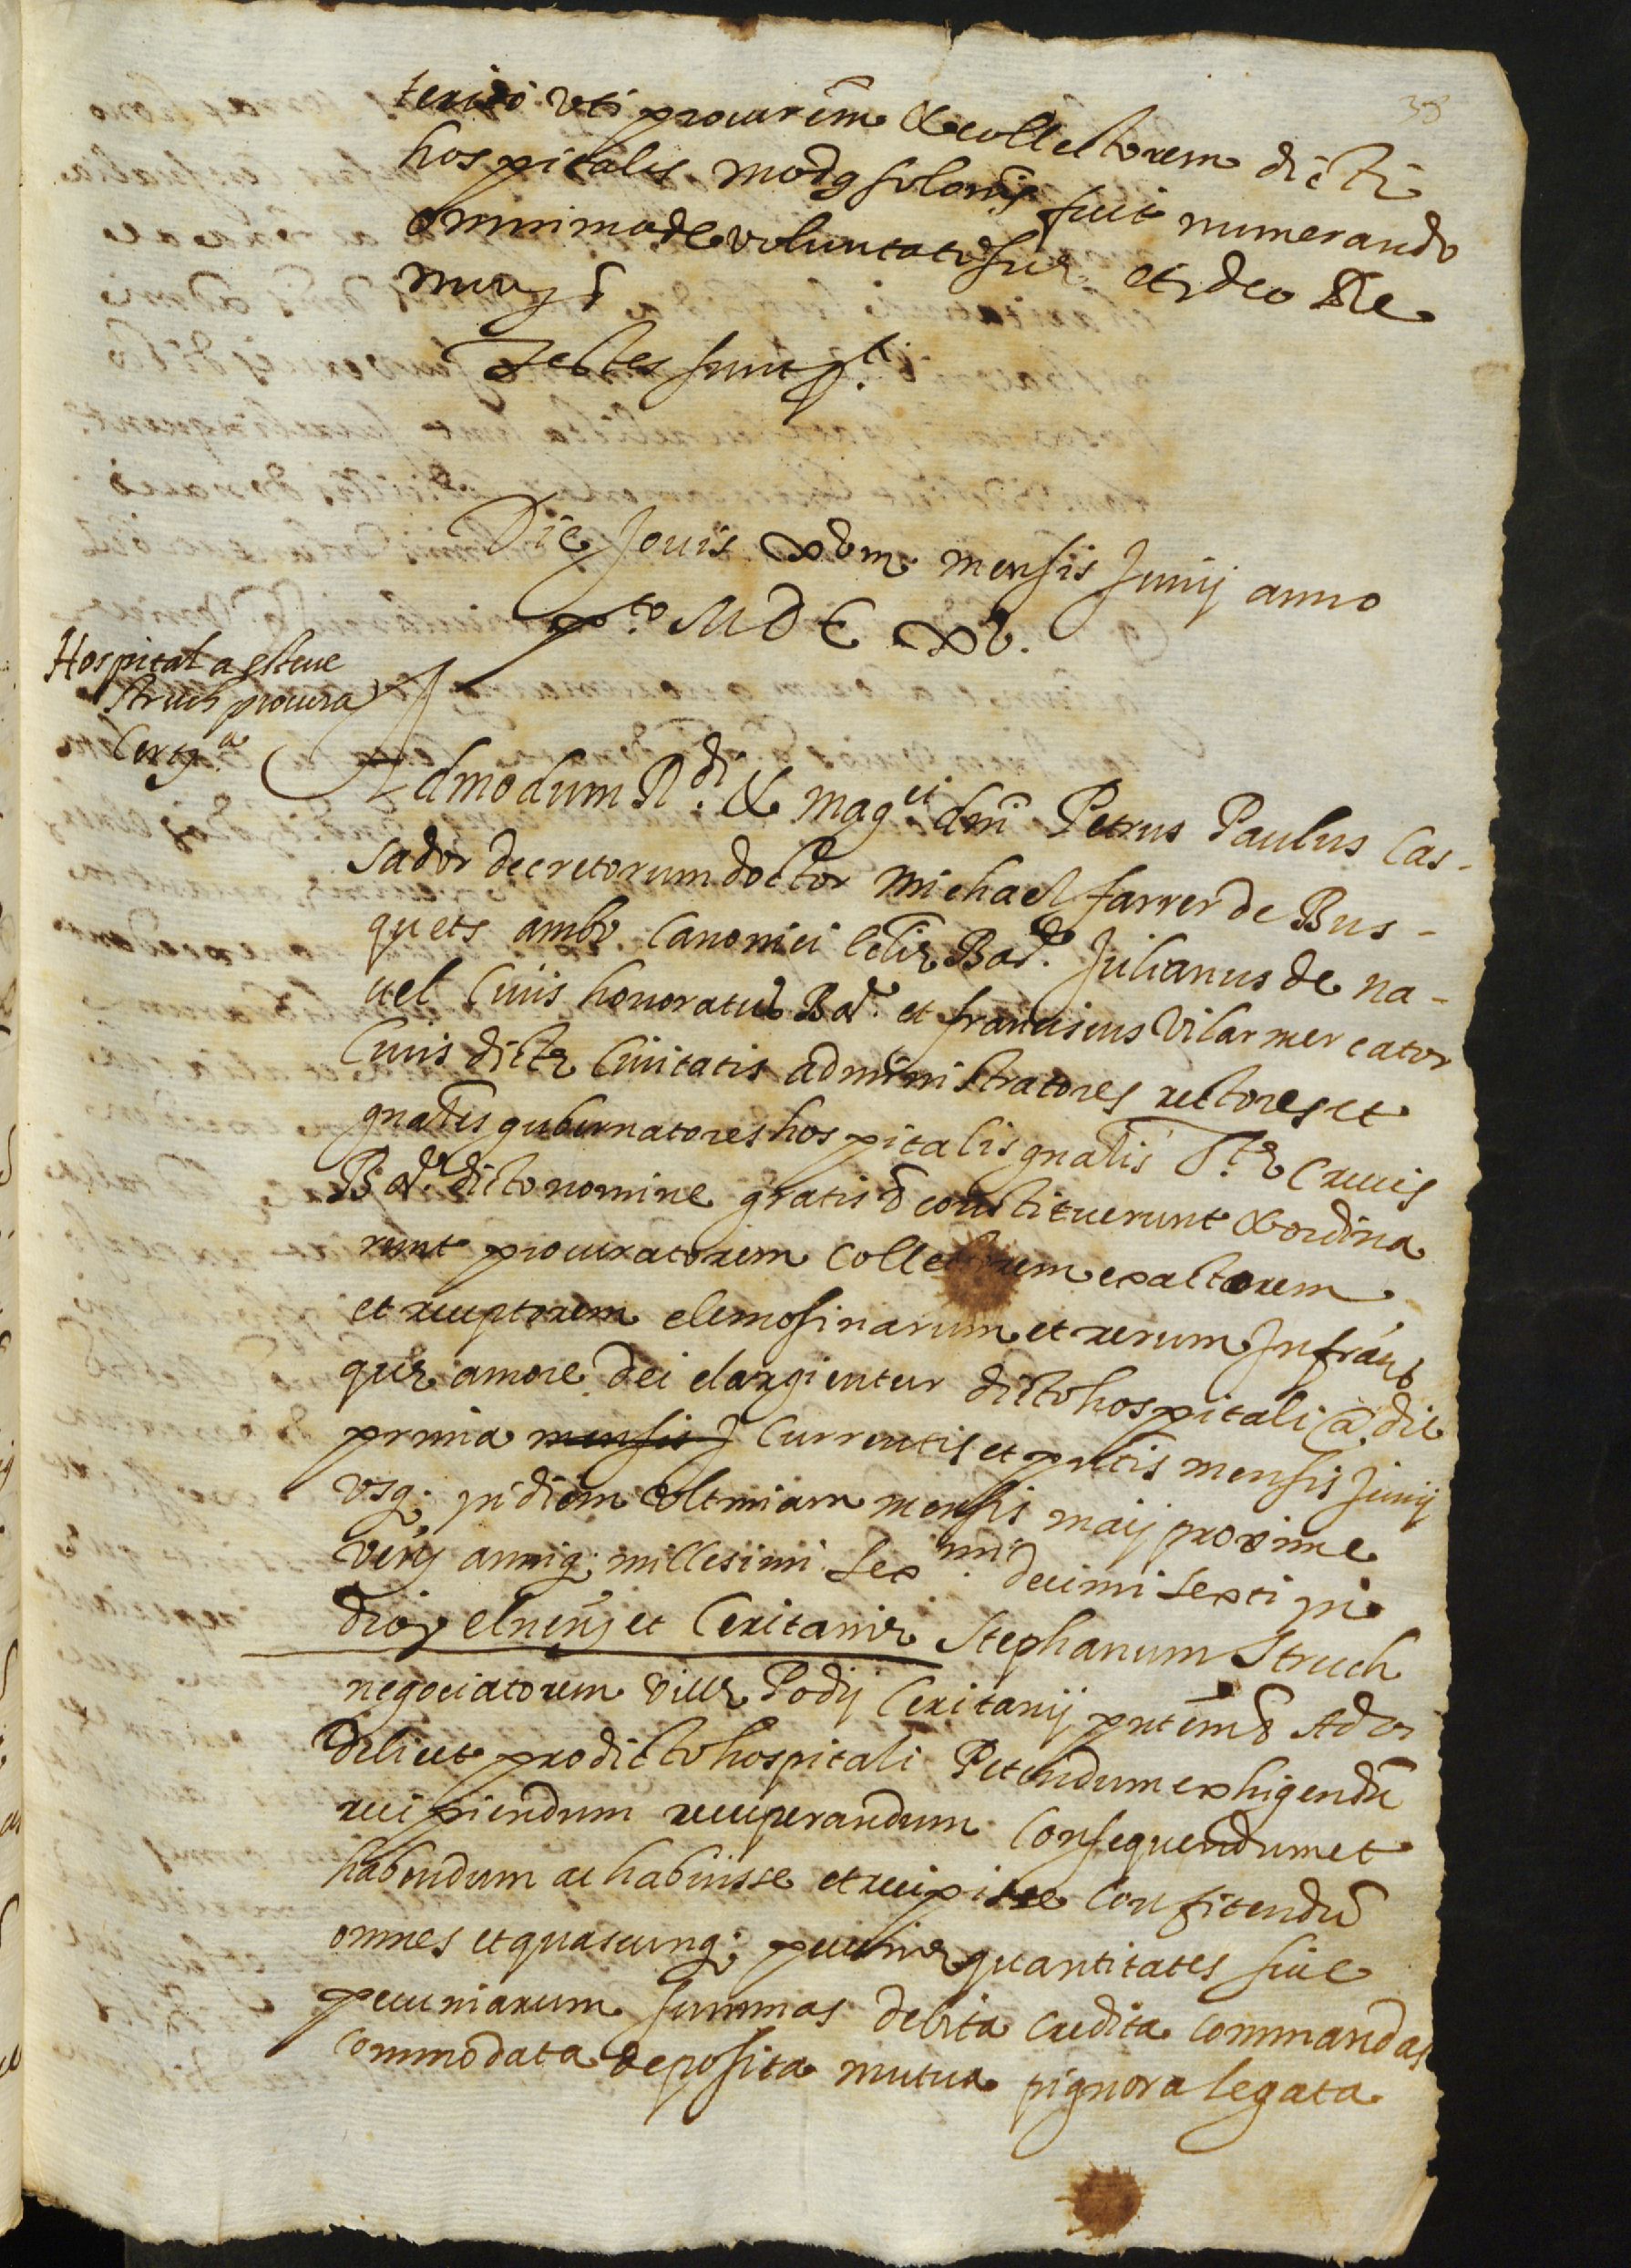 38
terito uti procurem & collectorem dicti
hospitalis modus solonis fuit numerando
omnimode voluntati suę et ideo Re
nun &
Testes sunt p.ti
Die Jouis xvm. mensis Junij anno
p.to MDCxv.
Hospital a esteue
struch procura
Cert.a
Admodum R.di & mag.ci dni Petrus Paulus Cas-
sador decretorum doctor Michael farrer de Bus-
quets ambo Canonici Ecclię Bar.e Julianus de na-
uel Ciuis honoratus Bar.e et franciscus Vilar mercator
Ciuis dictę Ciuitatis administratores rectores et
gnales gubernatores hospitalis gnalis S.tę Crucis
Bar.e dicto nomine gratis & constituerunt & ordina
runt procuratorem collectorem exactorem
et receptorem elemosinarum et rerum Infrarum
quę amore dei elargientur dicto hospitali a die
prima mensis J Currentis et pntis mensis Junij
usq; in diem ultimam mensis maij proxime
venj anniq; millesimi sex.mi decimi sexti in
dioc. elnen. et Ceritanię Stephanum Struch
negociatorem villę Podij Ceritanij pntem & Ad vi
delicet pro dicto hospitali Petendum exhigendũ
recipiendum recuperandum Consequendum et
habendum ac habuisse et recepisse Confitendũ
omnes et quascunq; pecunię quantitates siue
pecuniarum summas debita credita Commandas
Commodata deposita mutua pignora legata